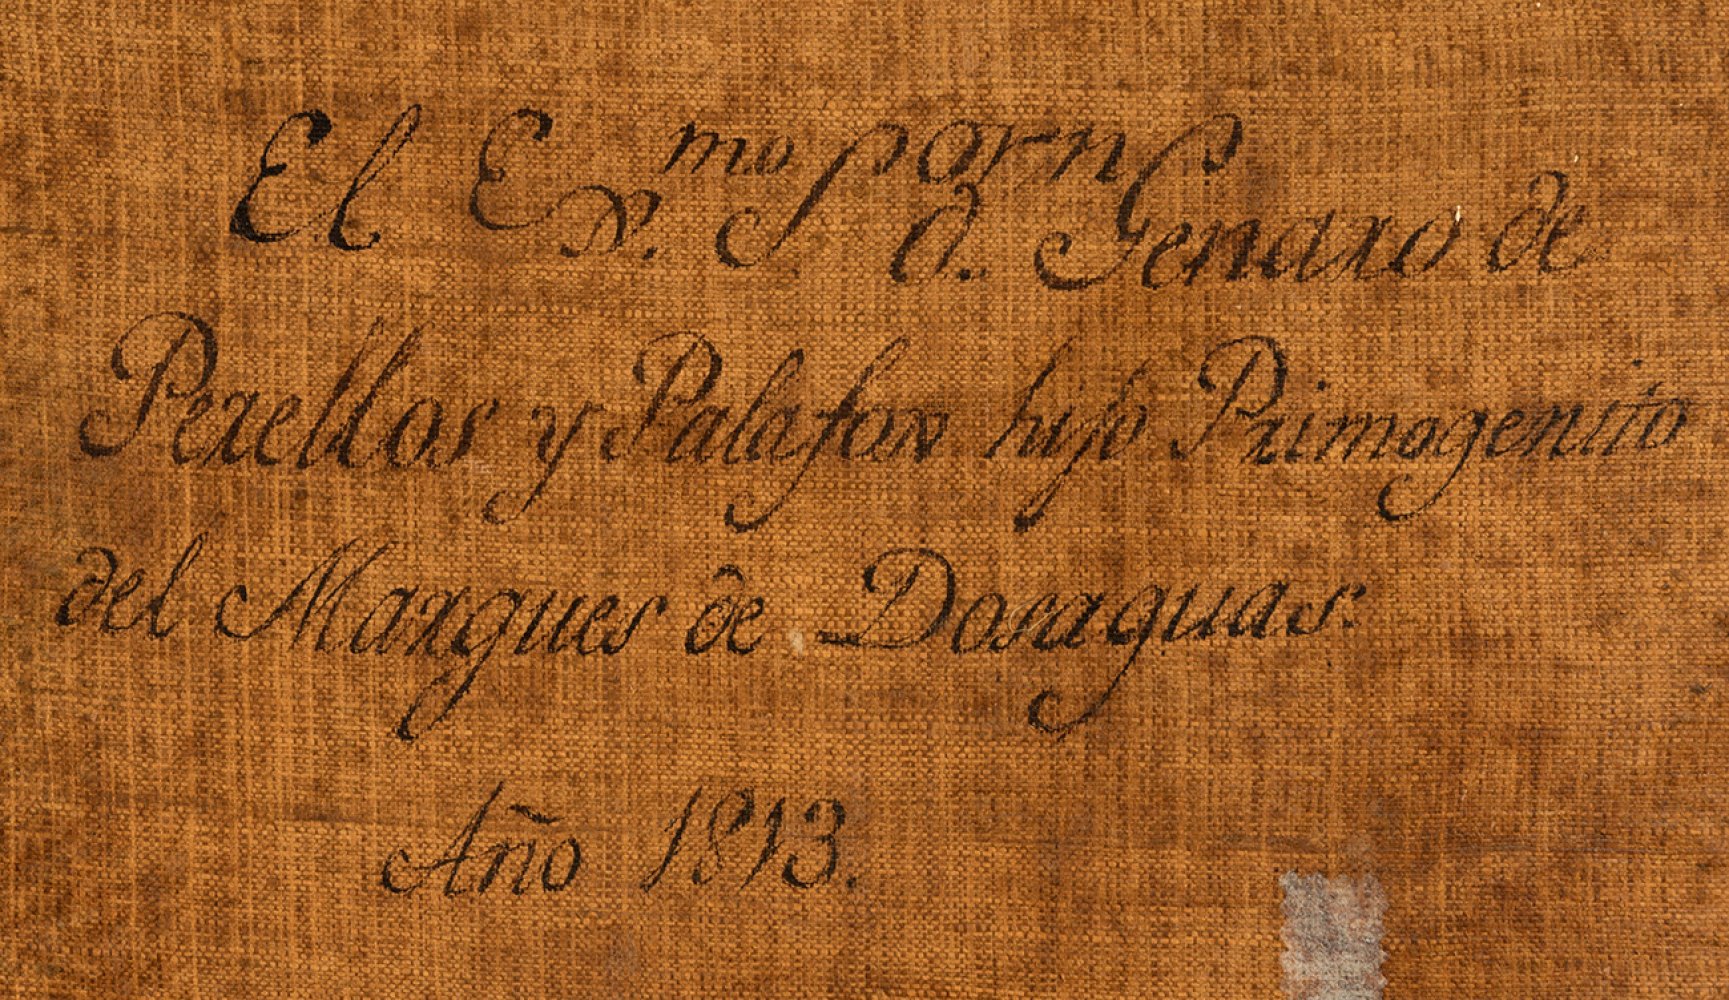 El Ex.mo Sor Dn Genaro de
Perellos y Palafox hijo Primogenito
del Marques de Dosaguas.
Año 1813.